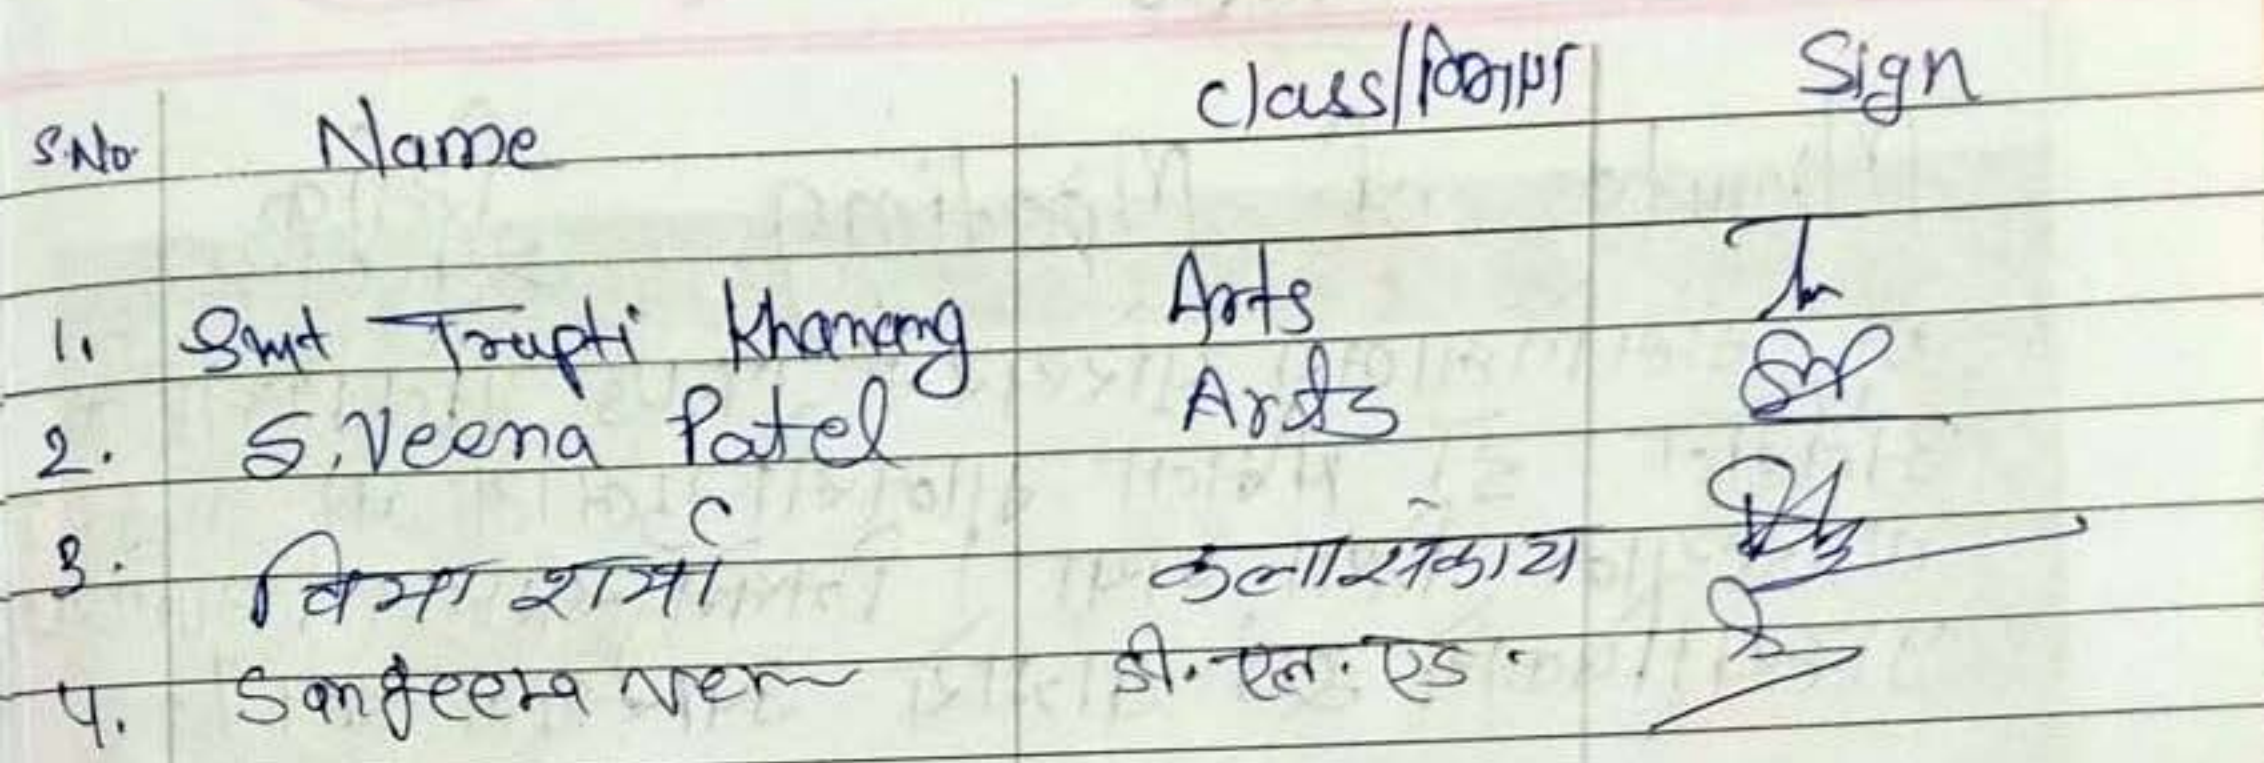 S.No. Name Class/विभाग Sign
1. Smt Trupti Khanang Arts
2. S. Veena Patel Arts
3. विभा शर्मा कला संकाय
4. डी. एल. एड.